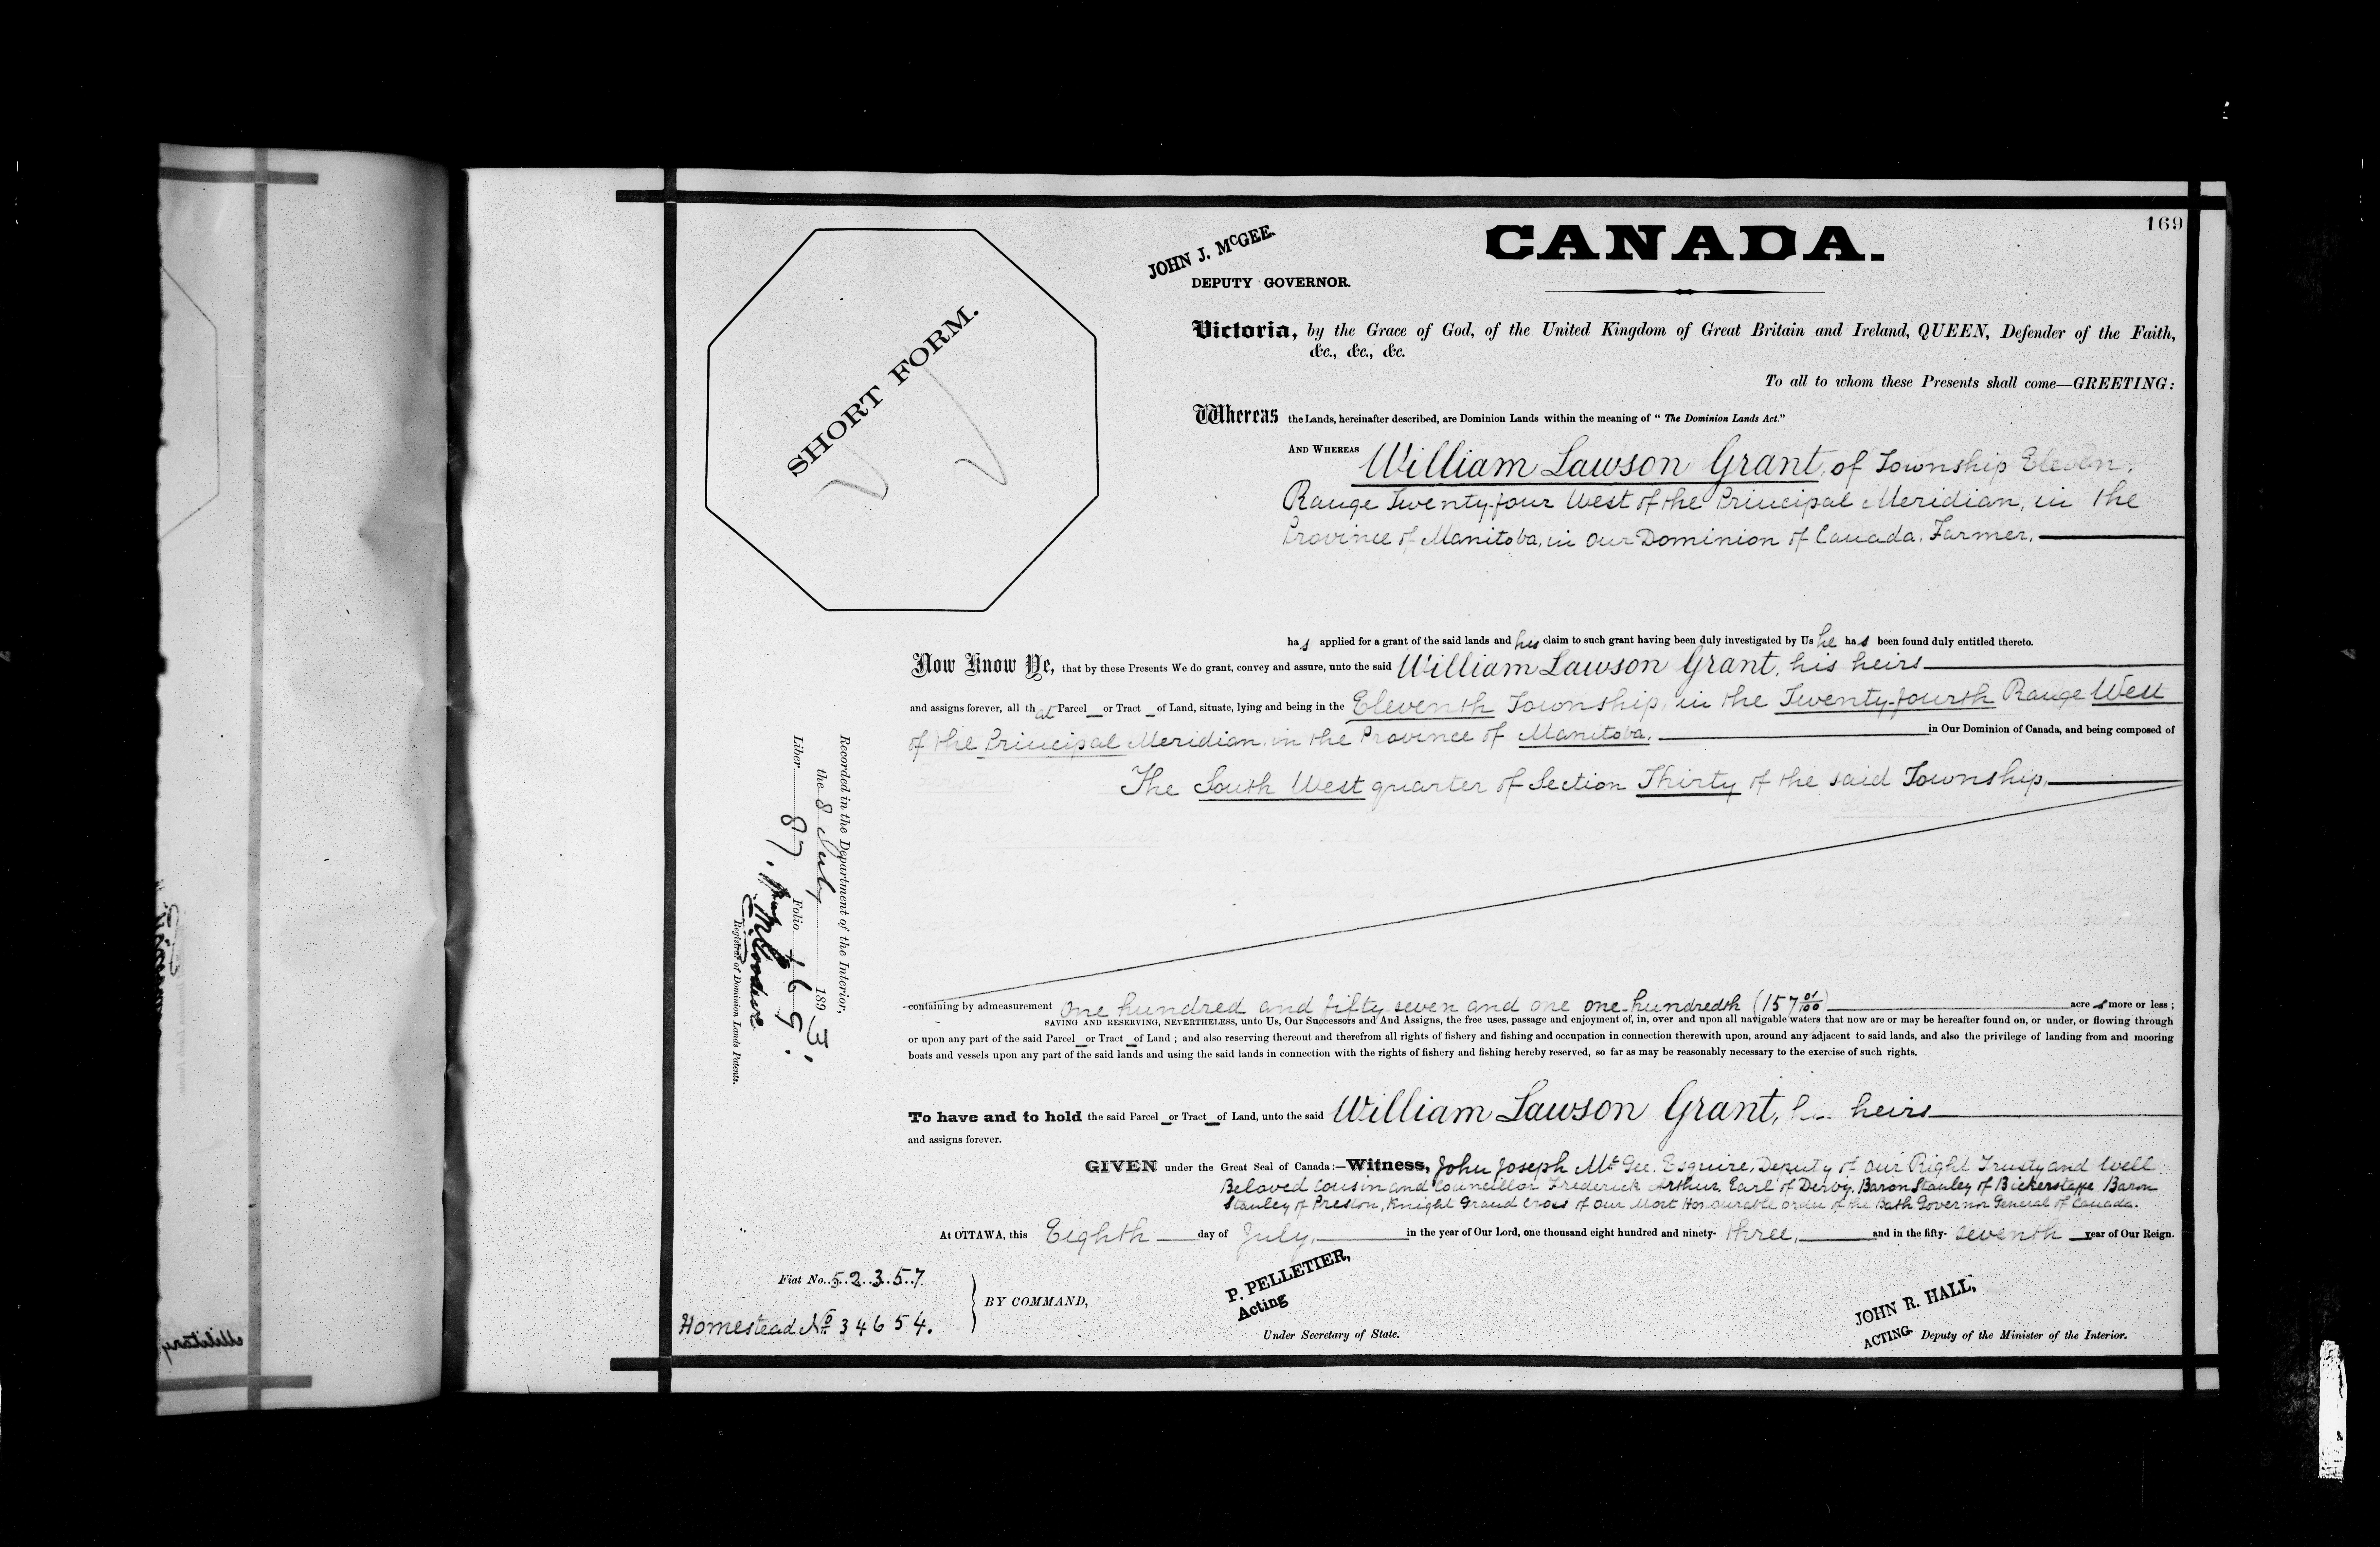 169
JOHN J. McGEE.
DEPUTY GOVERNOR.
CANADA.
SHORT FORM.
Victoria, by the Grace of God, of the United Kingdom of Great Britain and Ireland, QUEEN, Defender of the Faith,
&c., &c., &c.
To all to whom these Presents shall come—GREETING:
Whereas the Lands, hereinafter described, are Dominion Lands within the meaning of " The Dominion Lands Act."
AND WHEREAS William Lawson Grant, of Township Eleven,
Range Twenty-four West of the Principal Meridian, in the
Province of Manitoba, in Our Dominion of Canada, Farmer,
has applied for a grant of the said lands and his claim to such grant having been duly investigated by Us he has been found duly entitled thereto.
Now Know Ye, that by these Presents We do grant, convey and assure, unto the said William Lawson Grant, his heirs
and assigns forever, all that Parcel or Tract of Land, situate, lying and being in the Eleventh Township, in the Twenty-fourth Range West
of the Principal Meridian, in the Province of Manitoba, in Our Dominion of Canada, and being composed of
The South West quarter of Section Thirty of the said Township,
containing by admeasurement One hundred and fifty seven and one one-hundredth (157 01/100) acres more or less ;
SAVING AND RESERVING, NEVERTHELESS, unto Us, Our Successors and And Assigns, the free uses, passage and enjoyment of, in, over and upon all navigable waters that now are or may be hereafter found on, or under, or flowing through
or upon any part of the said Parcel or Tract of Land ; and also reserving thereout and therefrom all rights of fishery and fishing and occupation in connection therewith upon, around any adjacent to said lands, and also the privilege of landing from and mooring
boats and vessels upon any part of the said lands and using the said lands in connection with the rights of fishery and fishing hereby reserved, so far as may be reasonably necessary to the exercise of such rights.
To have and to hold the said Parcel or Tract of Land, unto the said William Lawson Grant, heirs
and assigns forever.
GIVEN under the Great Seal of Canada :—Witness, John Joseph McGee, Esquire, Deputy of Our Right Trusty and Well
Beloved Cousin and Councillor Frederick Arthur, Earl of Derby, Baron Stanley of Bickerstaffe Baron
Stanley of Preston, Knight Grand Cross of Our Most Honourable Order of the Bath Governor General of Canada.
At OTTAWA, this Eighth day of July, in the year of Our Lord, one thousand eight hundred and ninety- three, and in the fifty- seventh year of Our Reign.
Fiat No. 52357
Homestead No 34654.
BY COMMAND,
P. PELLETIER,
Acting
Under Secretary of State.
JOHN R. HALL,
ACTING Deputy of the Minister of the Interior.
Recorded in the Department of the Interior,
the 8 July 1893
Liber 87. Folio 169.
Registrar of Dominion Lands Patents.
Military